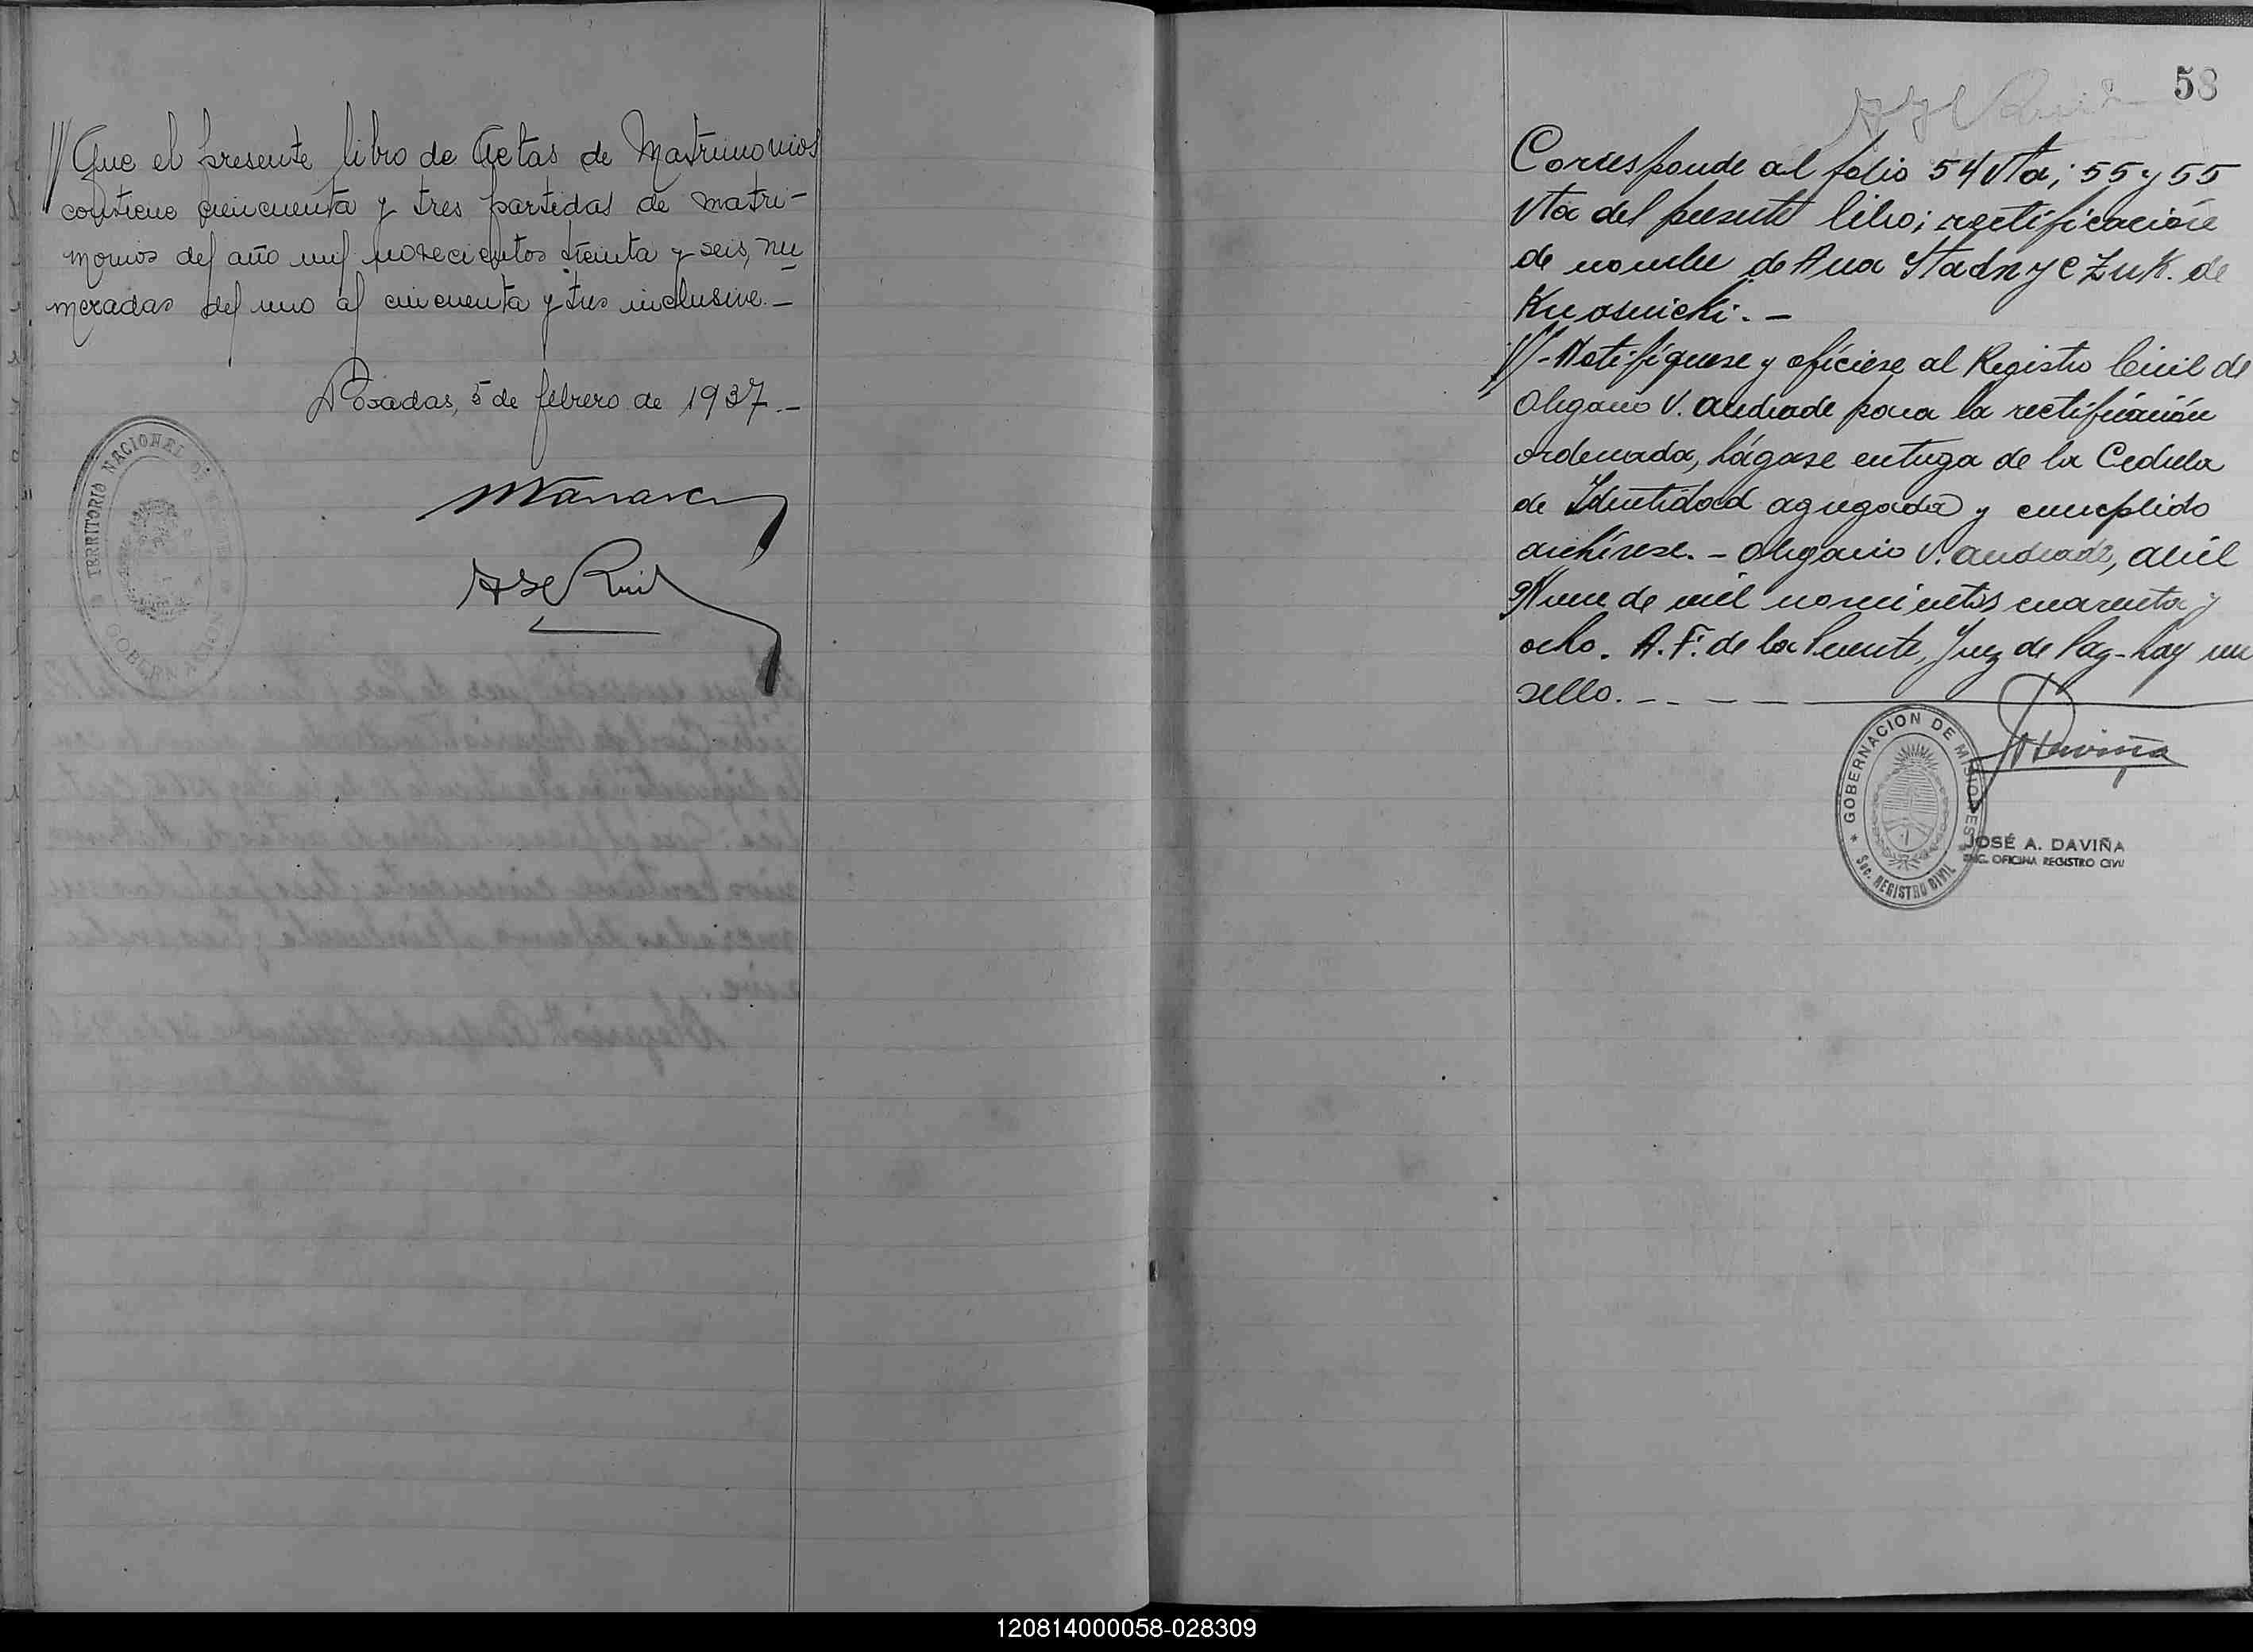 Que el presente libro de Actas de Matrimonios
contiene cincuenta y tres partidas de matri-
monios del año mil novecientos treinta y seis, nu
meradas del uno al cincuenta y tres inclusive.-
Posadas, 5 de febrero de 1937.-
TERRITORIO NACIONAL DE
GOBERNACION
58
Corresponde al folio 54 Vta; 55 y 55
Vta del presente libro; rectificación
de nombre de Ana Stadnyczuk. de
///- Notifíquese y ofíciese al Registro Civil de
Olegario V. Andrade para la rectificación
ordenada, hágase entrega de la Cedula
de Identidad agregada y cumplido
archívese. - Olegario V. Andrade, abril
Nueve de mil novecientos cuarenta y
ocho. A. F. de la Puente, Juez de Paz - hay un
sello. - - - -
GOBERNACION DE MISIONES
Sec. REGISTRO CIVIL
JOSÉ A. DAVIÑA
ENC. OFICINA REGISTRO CIVIL
120814000058-028309